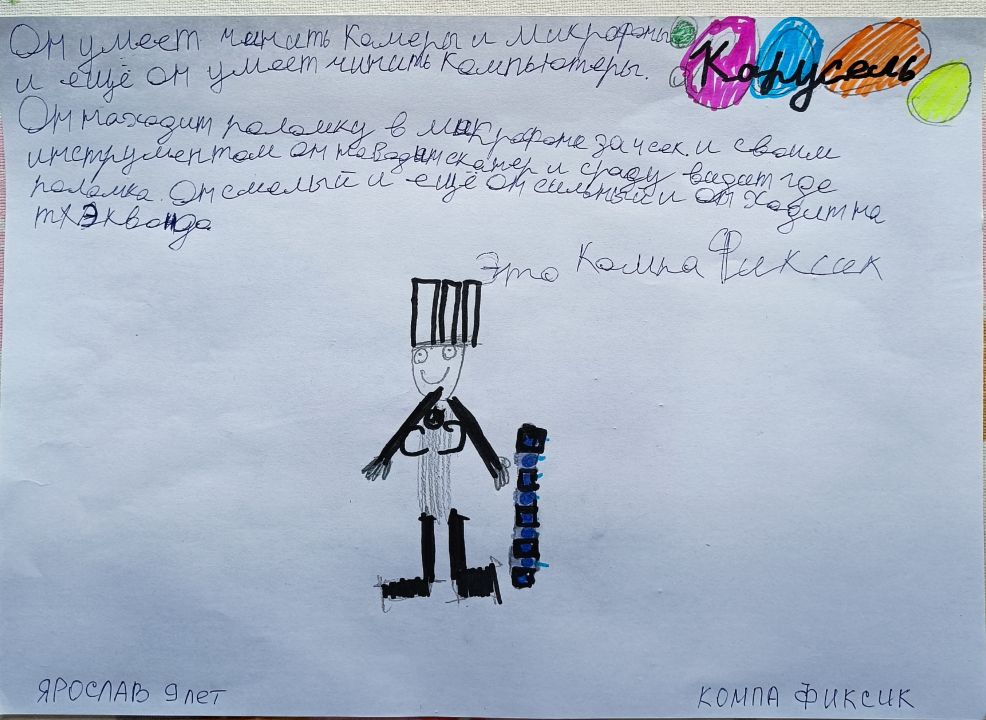 Он умеет чинить Камеры и микрофоны
и ещё он умеет чинить Компьютеры.
Карусель
Он находит поломку в микрофоне за 1 сек. и своим
инструментом он наводит сканер и сразу видит где
поломка. Он смелый и ещё он сильный и он ходит на
тхэквондо
Это Компа Фиксик
ЯРОСЛАВ 9 лет
КОМПА ФИКСИК